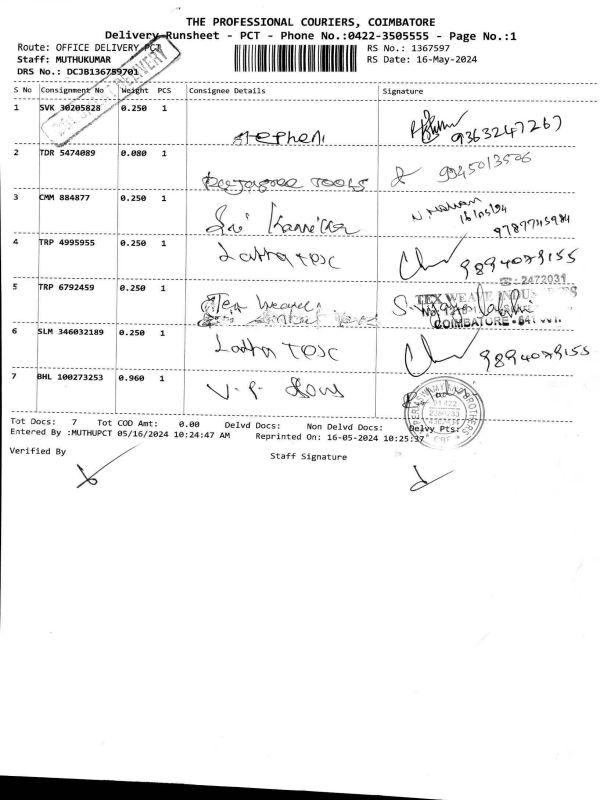 THE PROFESSIONAL COURIERS, COIMBATORE
Delivery Runsheet - PCT - Phone No.:0422-3505555 - Page No.:1
Route: OFFICE DELIVERY PCT
RS No.: 1367597
Staff: MUTHUKUMAR
RS Date: 16-May-2024
DRS No.: DCJB136759701
S No Consignment No Weight PCS Consignee Details Signature
1 SVK 30205828 0.250 1
Stephen 9363247267
2 TDR 5474089 0.080 1
Tools 9345013506
3 CMM 884877 0.250 1
Sri 16/05/24
9787745984
4 TRP 4995955 0.250 1
Latha TPSC 9894079155
5 TRP 6792459 0.250 1
☎: 2472031
Tex Weave TEX WEAVE
COIMBATORE - 641
6 SLM 346032189 0.250 1
Latha TPSC 9894079155
7 BHL 100273253 0.960 1
V. P. Sons
Tot Docs: 7 Tot COD Amt: 0.00 Delvd Docs: Non Delvd Docs: Delvy Pts:
Entered By :MUTHUPCT 05/16/2024 10:24:47 AM Reprinted On: 16-05-2024 10:25:37
Verified By Staff Signature